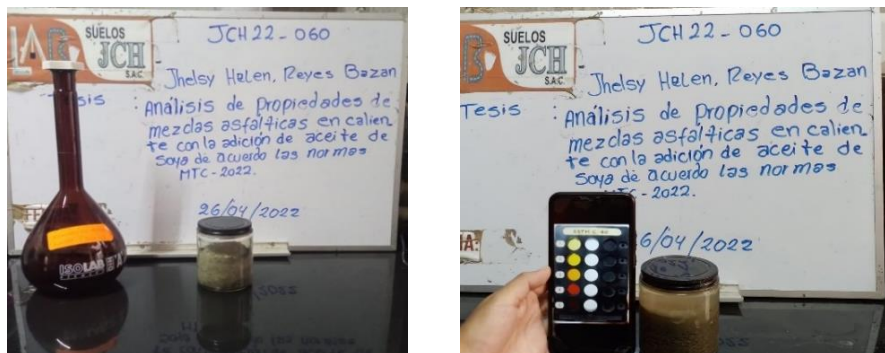 LAB
SUELOS
JCH
S.A.C.
JCH 22-060
Jhelsy Helen, Reyes Bazan
sis
: Análisis de Propiedades de
mezclas asfálticas en calien
te con la adición de aceite de
Soya de acuerdo las normas
MTC-2022.
26/04/2022
ISOLAB
SUELOS
JCH
S.A.C.
JCH 22-060
Jhelsy Helen, Reyes Bazan
Tesis : Análisis de Propiedades de
mezclas asfálticas en calien
te con la adición de aceite de
Soya de acuerdo las normas
MTC-2022.
HA:
6/04/2022